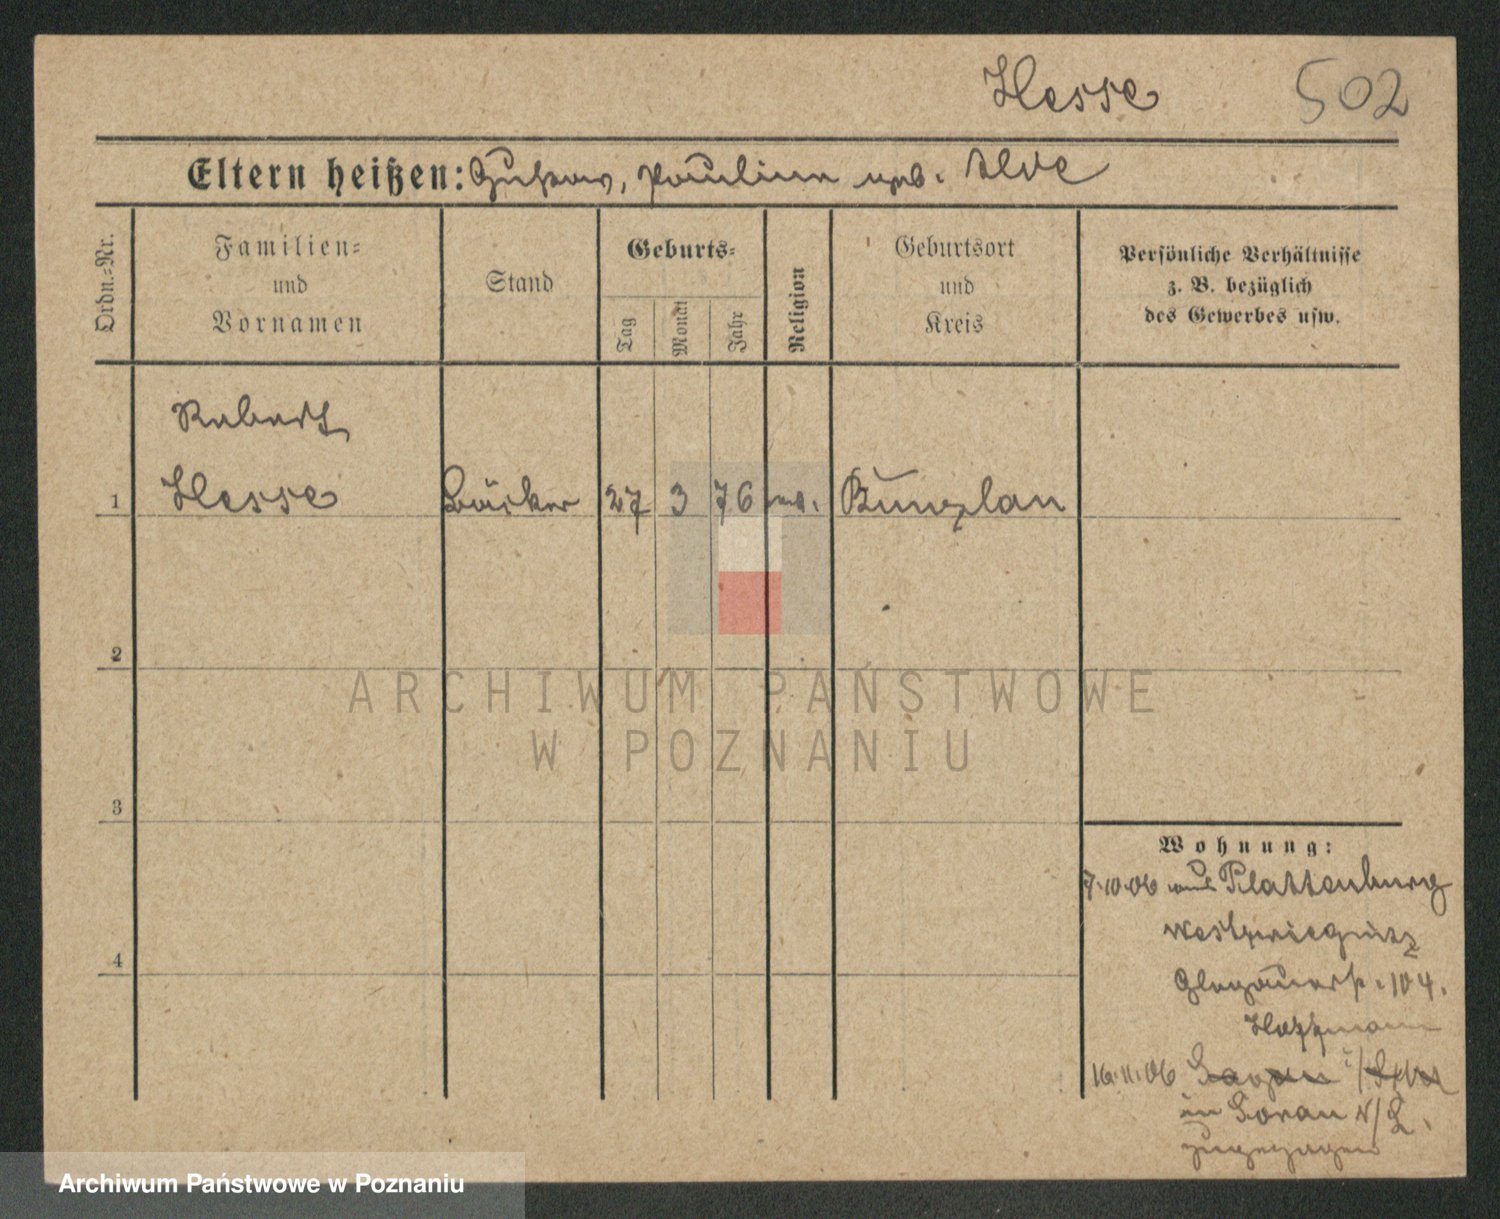 Hesse 502
Eltern heißen: Gustav, Pauline geb.
Ordn.-Nr.
Familien-
und
Vornamen
Stand
Geburts-
Tag
Monat
Jahr
Religion
Geburtsort
und
Kreis
Persönliche Verhältnisse
z. B. bezüglich
des Gewerbes usw.
Robert
1 Hesse Bäcker 27 3 76 ev. Bunzlau
2
ARCHIWUM PAŃSTWOWE
W POZNANIU
3
Wohnung:
7.10.06 aus Plattenburg
Westpriegnitz
4
Glogauerstr. 104.
Hoffmann
16.11.06
in Sorau N/L.
zugezogen
Archiwum Państwowe w Poznaniu